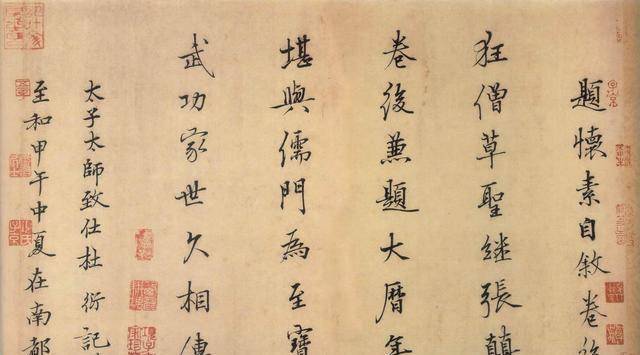 題懷素自敘卷後
狂僧草聖繼張顛
卷後兼題大曆年
堪與儒門為至寶
武功家世久相傳
太子太師致仕杜衍記
至和甲午中夏在南都